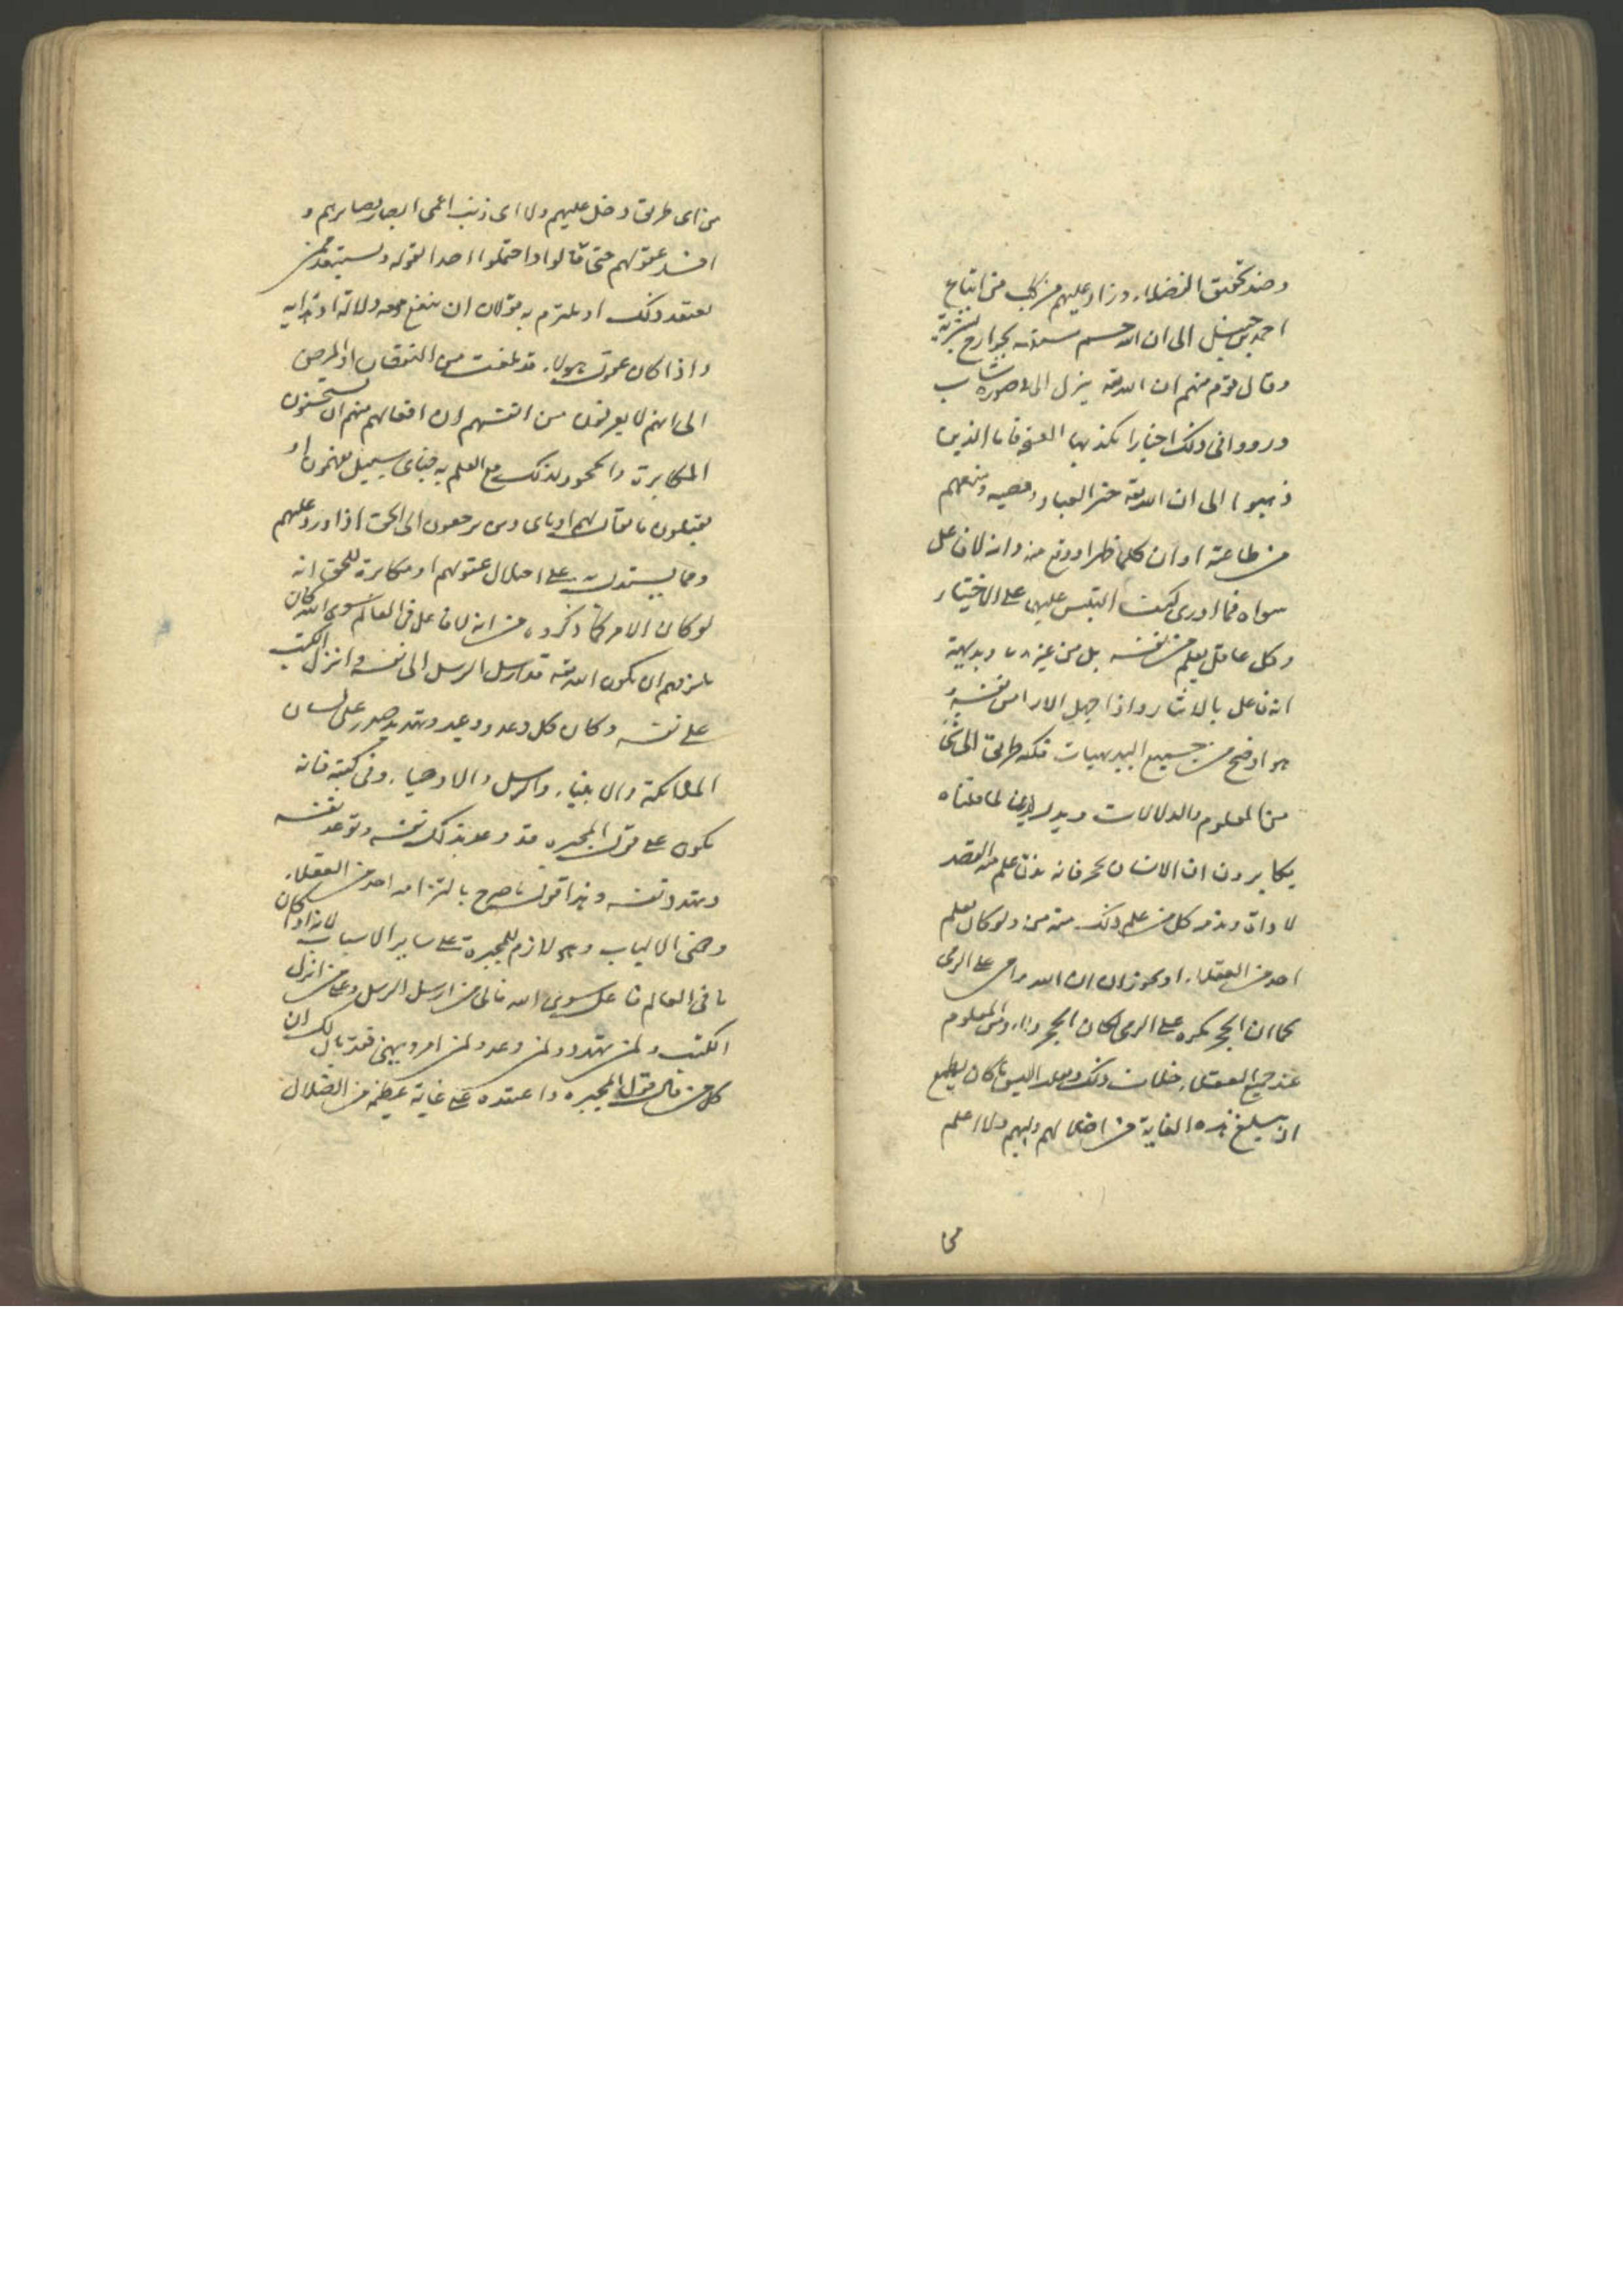 وضد تحقيق الفضلاء وزاد عليهم من كلب من اتباع
احمد بن حنبل الى ان الله جسم بجوارح بشرية
وقال قوم منهم ان الله تعه ينزل الى صورة شاب
ورووا فى ذلك اخبارا يكذبها العقل فاما الذين
ذهبوا الى ان الله تعه جبر العباد ومنعهم
من طاعته او ان كلما ظهر او وقع منه وانه لا فاعل
سواه فما ادرى كيف التبس عليهم على الاختيار
وكل عاقل يعلم من نفسه بل من غيره وبديهية
انه فاعل بالايثار واذا جهل الامر من نفسه و
هو اوضح من جميع البديهيات فكيف طريق الى شى
من المعلوم والدلالات ويدل ايض لما قلناه
يكابرون ان الانسان يحرفانه علم منه القصد
لاذاه ويذمه كل من علم ذلك منه ولو كان يعلم
احد من العقلاء او يجوز ان الله على الرمى
كما ان الحجر مكره على الرمى لكان الحجر ومن المعلوم
عند جميع العقلاء خلاف ذلك ولعل ابليس ما كان يطمع
ان يبلغ هذه الغاية من اضلالهم ولا اعلم
من
من اى طريق دخل عليهم ولا اى ذنب اعمى ابصار بصايرهم و
افسد عقولهم حتى قالوا واحتملوا احدا لقوله ويستبعد ممن
يعتقد ذلك او يلتزم به مقولان ان ينفع معه دلالة او هدايه
واذا كان عقول هولاء قد بلغت من النقصان او المرض
الى انهم لا يعرفون من انفسهم ان افعالهم منهم او يستحسنون
المكابرة والجحود لذلك مع العلم به فباى سبيل يفهمون او
يقبلون ما يقال لهم او باى دين يرجعون الى الحق اذا ورد عليهم
ومما يستدل به على اختلال عقولهم او مكابرة للحق انه
لو كان الامر كما ذكروه من انه لا فاعل فى العالم سوى الله كان
يلزمهم ان يكون الله تعه قد ارسل الرسل الى نفسه وانزل الكتب
على نفسه وكان كل وعد ووعيد وتهديد صدر على لسان
الملائكة والانبياء والرسل والاوصياء وفى كتبه فانه
يكون على قول المجبره قد وعد بذلك نفسه وتوعد نفسه
وتهدد نفسه وهذا قول ما صرح بالتزامه احد من العقلاء
وذوى الالباب وهو لازم للمجبرة على ساير الاسباب لانه اذا كان
ما فى العالم فاعل سوى الله فالى من ارسل الرسل وعلى من انزل
الكتب ولمن تهدد ولمن وعد ولمن امر ونهى فقد بان لك ان
كل من قال بقول المجبره واعتقده على غاية عظيمة من الضلال